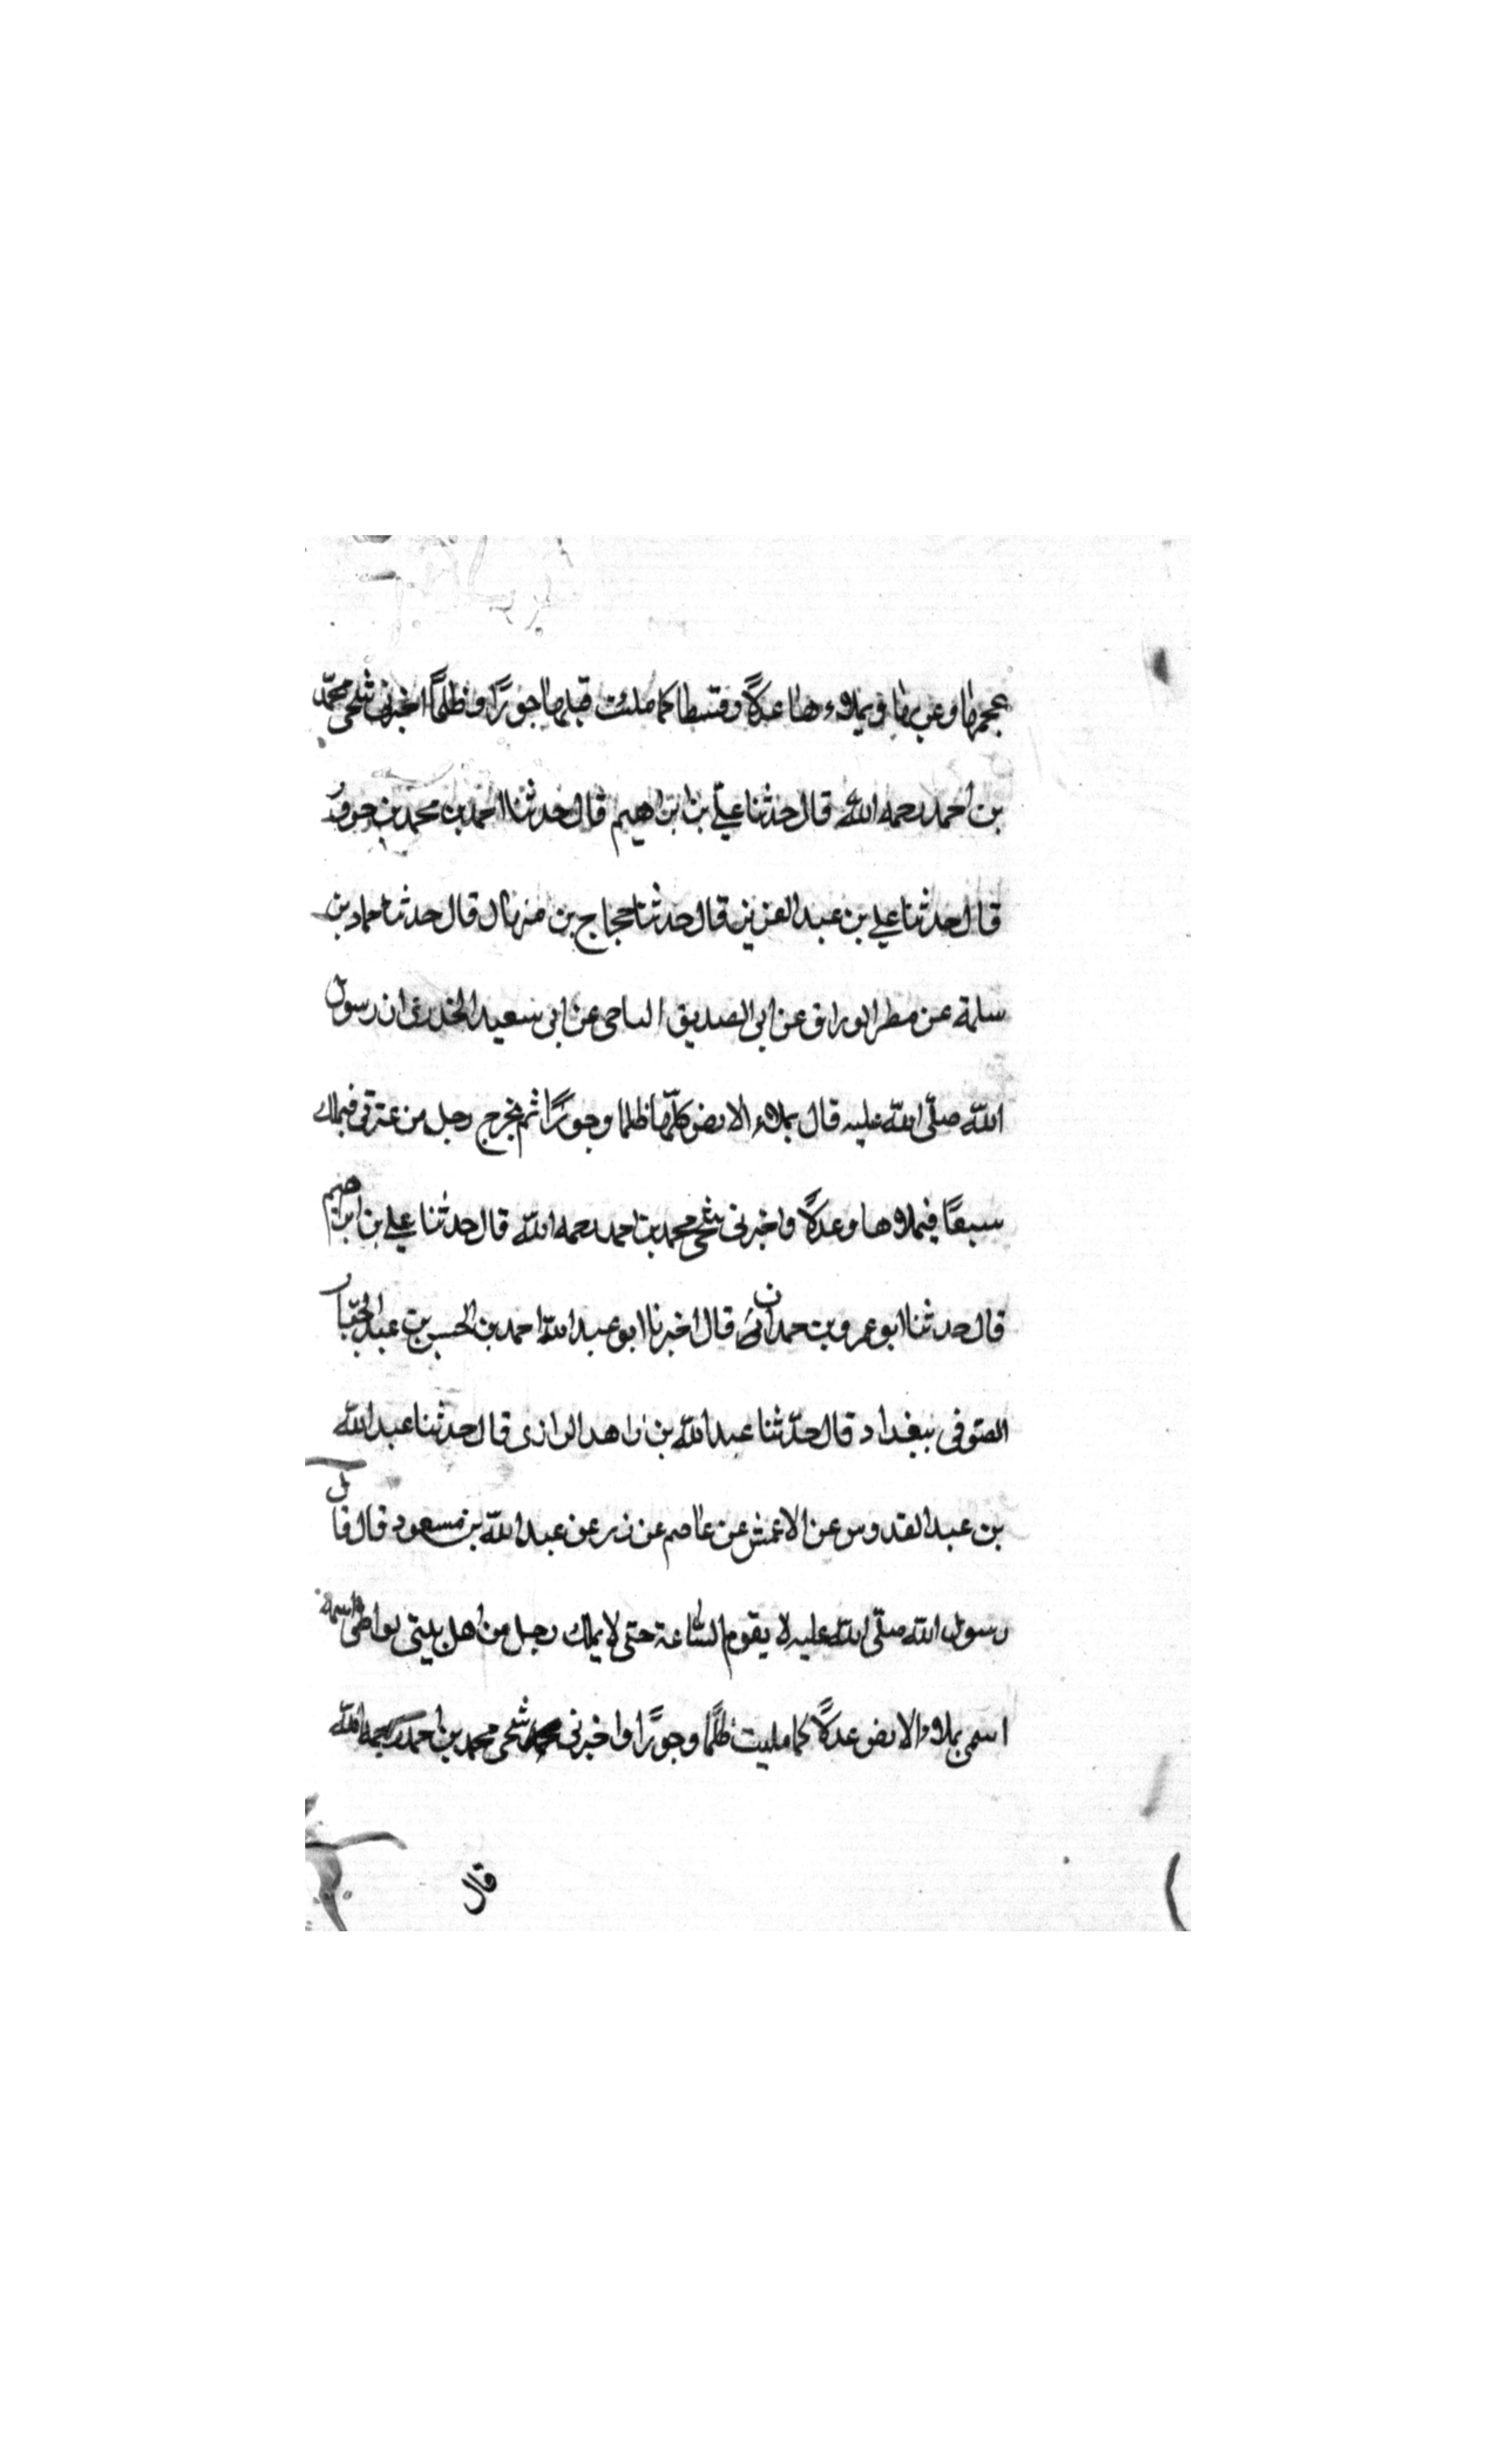 عجمها وعربها ويملاءها عدلًا وقسطا كما ملئت قبلها جورًا وظلمًا اخبرنى شيخى محمّد
بن احمد رحمه اللّه قال حدثنا علىّ بن ابراهيم قال حدثنا احمد بن محمد بن
قال حدثنا على بن عبد العزيز قال حدثنا حجاج بن منهال قال حدثنا حماد بن
سلمة عن مطر الوراق عن ابى الصديق الناجى عن ابى سعيد الخدرى ان رسول
اللّه صلّى اللّه عليه قال يملاء الارض كلّها ظلما وجورًا ثم يخرج رجل من عترتى فيملك
سبعًا فيملاءها وعدلًا واخبرنى شيخى محمد بن احمد رحمه اللّه قال حدثنا على بن ابراهيم
قال حدثنا ابو عمرو بن حمدان قال اخبرنا ابو عبد اللّه احمد بن الحسن بن عبد الجبّار
الصوفى ببغداد قال حدّثنا عبد اللّه بن زاهد الرازى قال حدثنا عبد اللّه
بن عبد القدوس عن الاعمش عن عاصم عن زر عن عبد اللّه بن مسعود قال قال
رسول اللّه صلّى اللّه عليه لا يقوم الساعة حتى لا يملك رجل من اهل بيتى يواطى اسمه
اسمى يملاء الارض عدلًا كما مليت ظلمًا وجورًا واخبرنى شيخى محمد بن احمد رحمه اللّه
قال